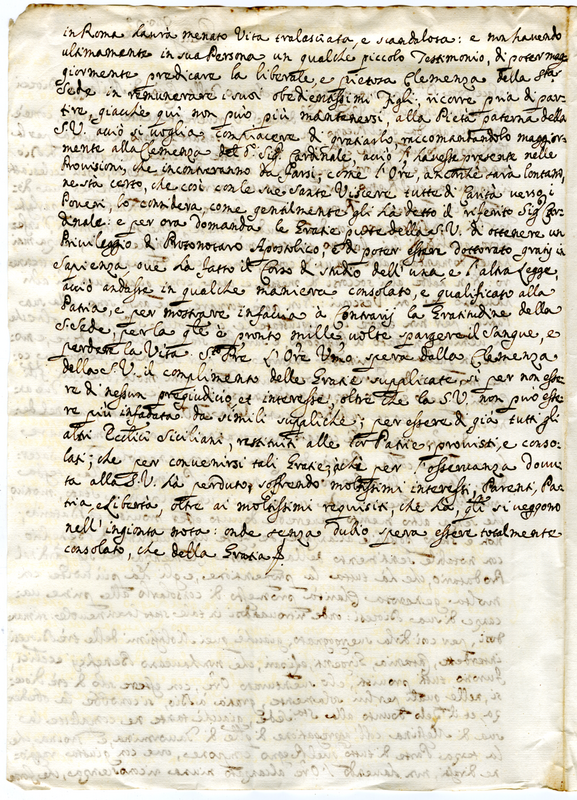 in Roma havrà menato Vita tralasciata, e scandalosa: e non havendo
ultimamente in sua Persona un qualche piccolo Testimonio, di poter mag
giormente predicare la liberale, e pietosa Clemenza della Sta
Sede in remunerare i suoi obedientissimi figli, ricorre pria di par-
tire, giache quì non può più mantenersi, alla Pietà paterna della
S.V. acciò si voglia compiacere di gratiarlo, raccomandandolo maggior-
mente alla Clemenza del Sig. Cardinale, acciò l'havesse presente nelle
Provisioni, che incontreranno da farsi; come l'Ore, ancorche sarà lontano,
ne sta certo, che così con le sue Sante Viscere tutte di Carità verso i
Poveri, lo considera, come gentilmente gli ha detto il riferito Sig. Car-
dinale: e per ora domanda le Gratie piote della S.V. di ottenere un
Privileggio di Protonotaro Apostolico, e di poter essere dottorato gratis in
Sapienza ove ha fatto il Corso di studio dell'una e l'altra Legge,
acciò andasse in qualche maniera consolato, e qualificato alla
Patria, e per mostrare in faccia à Contrarij la Gratitudine della
S. Sede, per la qle è pronto mille volte spargere il Sangue, e
perdere la Vita. Sto Pre l'Ore Umo spera della Clemenza
della S.V. il complimento delle Gratie supplicate, si per non esse
re di nessun pregiudicio, et interesse, oltre che la S.V. non può esse
re più infadata da simili suppliche; per essere di già tutti gli
altri Ecclici Siciliani, restituiti alle lor Patrie, provisti, e conso-
lati; che per convenirsi tali Gratie, a che per l'osservanza dovu-
ta alla S.V. ha perduto, soffrendo moltissimi interessi, Parenti, Pa-
tria, e Libertà, oltre ai moltissimi requisiti che ha, gli si veggono
nell'ingionta nota: onde senza dubio spera essere totalmente
consolato, che della Gratia